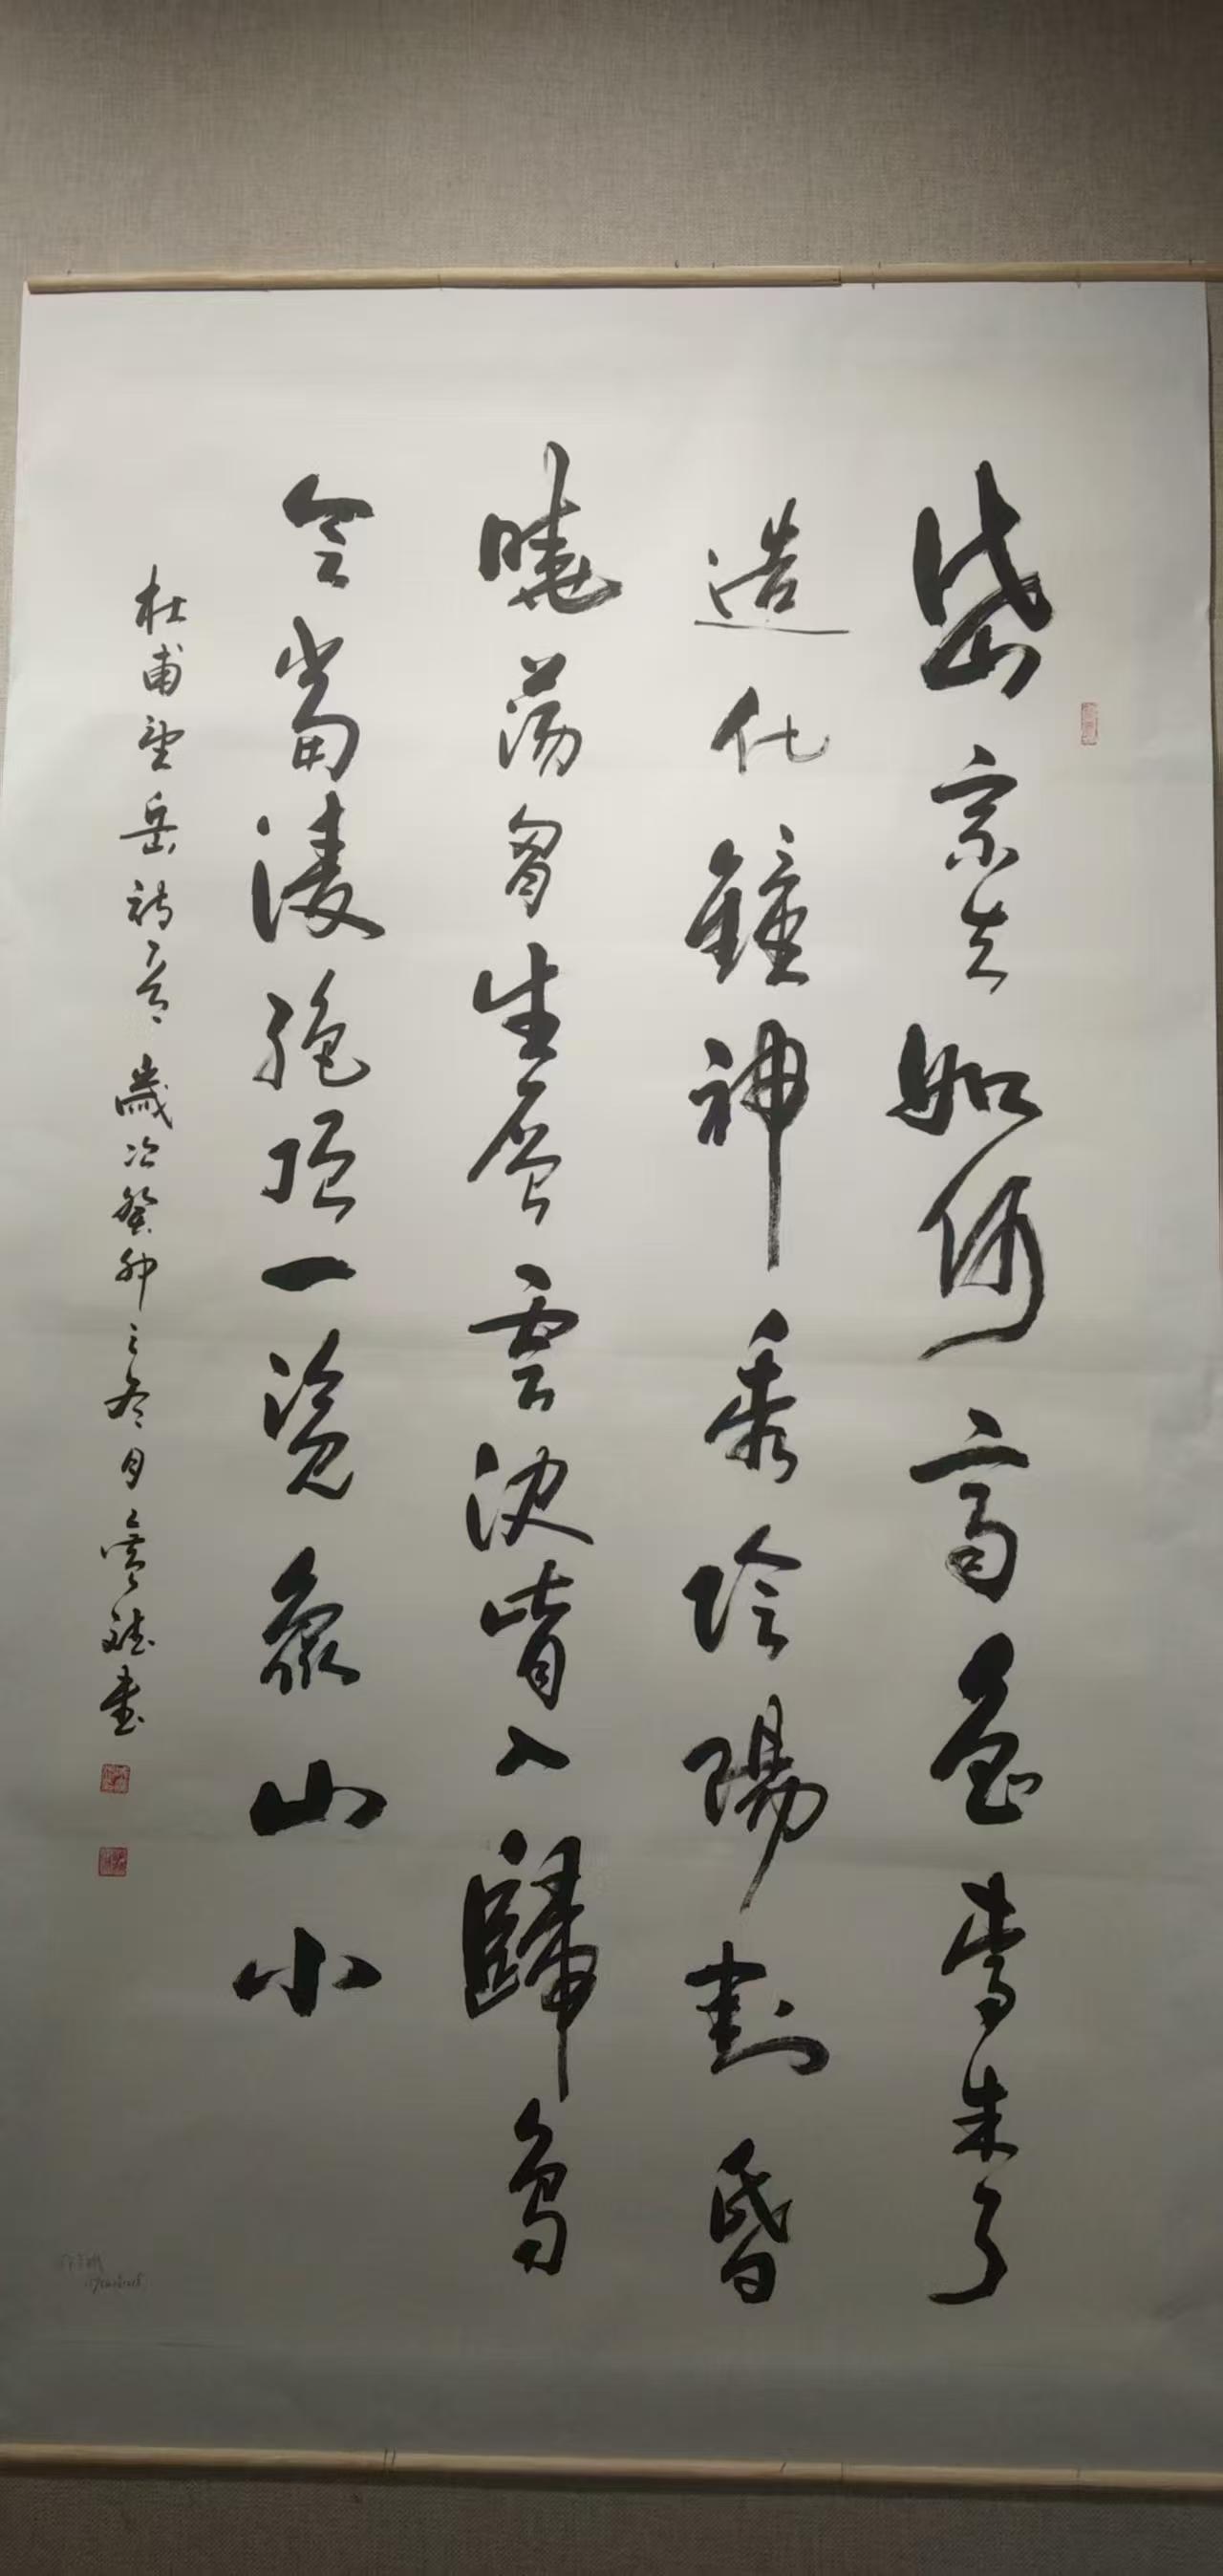 岱宗夫如何齊魯青未了
造化鍾神秀陰陽割昏
曉蕩胷生層雲決眥入歸鳥
會當淩絕頂一覽衆山小
杜甫望岳詩意歲次癸卯之冬月書